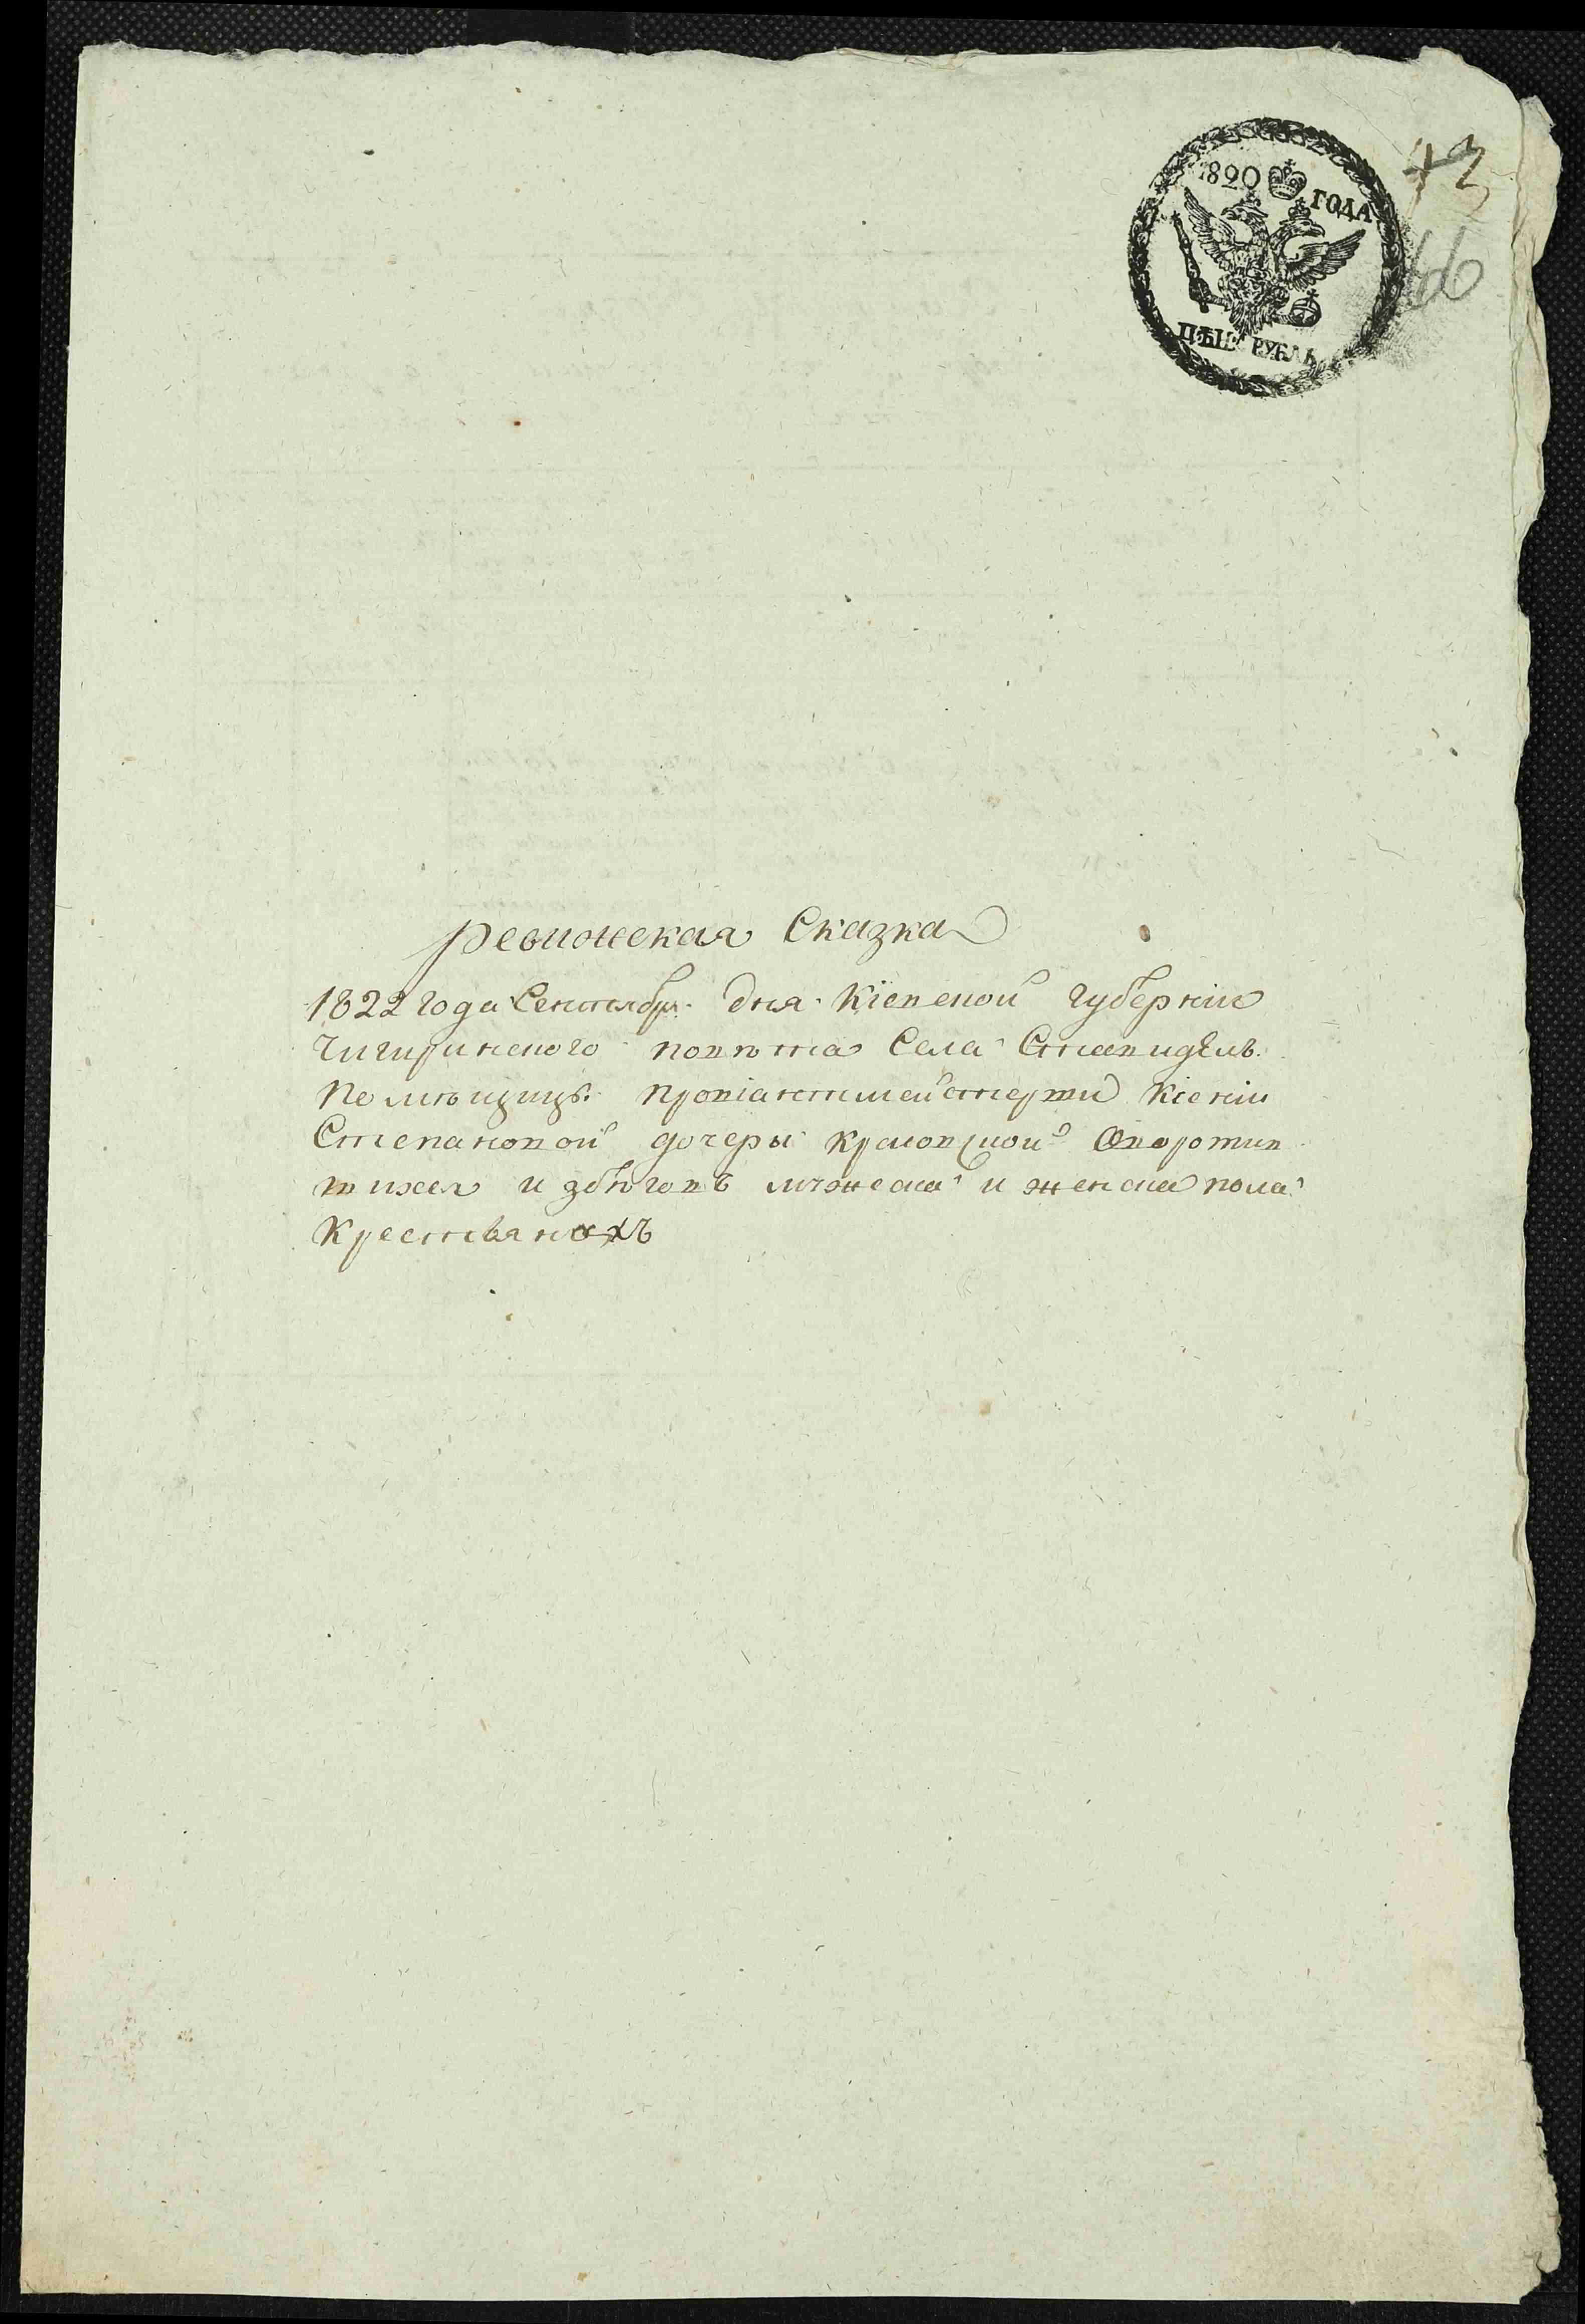 1820 ГОДА
ЦѢН: РУБЛЬ
73
66
Ревизская Сказка
1822 года Сентября дня Кіевской Губерніи
Чигиринского повѣта Села Ставидель
Помѣщицы Провіантмейстерши Ксеніи
Степановой дочеры
и збѣговъ мужеска и женска пола
Крестьянахъ